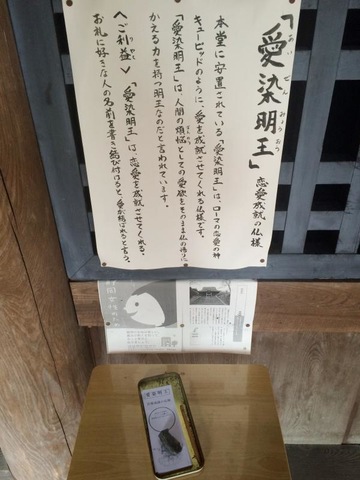 「愛染明王」 恋愛成就の仏様
あいぜんみょうおう
本堂に安置されている「愛染明王」は、ローマの恋愛の神
キューピッドのように、愛を成就させてくれる仏様です。
「愛染明王」は、人間の煩悩としての愛欲をそのまま仏の悟りに
かえる力を持つ明王なのだと言われています。
<ご利益> 「愛染明王」は、恋愛を成就させてくれる。
お札に好きな人の名前を書き結び付けると、愛が結ばれると言う。
愛染明王